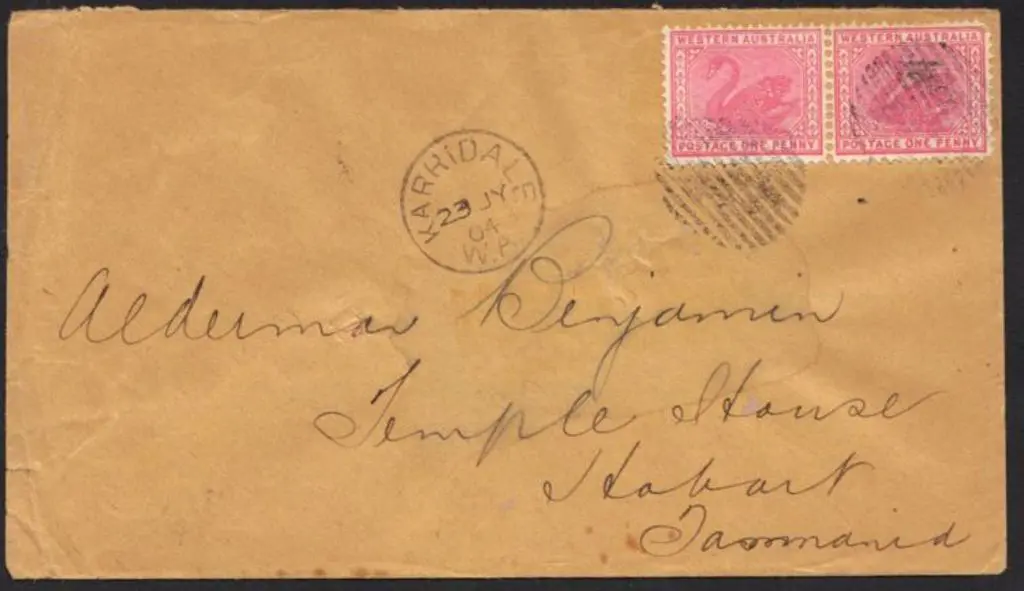 WESTERN AUSTRALIA
POSTAGE ONE PENNY
WESTERN AUSTRALIA
POSTAGE ONE PENNY
KARRIDALE
23 JY
04
W.A
Alderman Benjamin
Temple House
Hobart
Tasmania